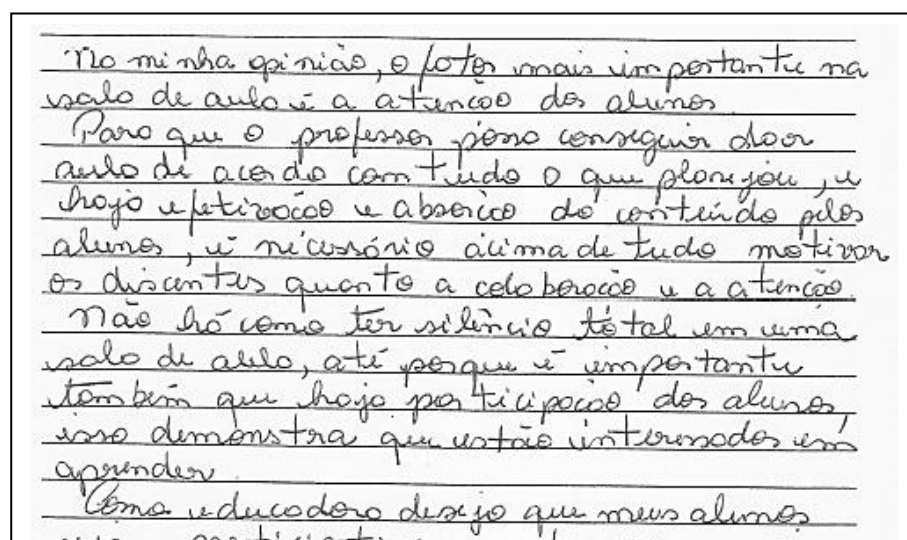 Na minha opinião, o fator mais importante na
sala de aula é a atenção dos alunos
Para que o professor possa conseguir dar
aula de acordo com tudo o que planejou, e
haja efetivação e absorção do conteúdo pelos
alunos, é necessário acima de tudo motivar
os discentes quanto a colaboração e a atenção.
Não há como ter silêncio total em uma
sala de aula, até porque é importante
também que haja participação dos alunos,
isso demonstra que estão interessados em
aprender.
Como educadora desejo que meus alunos